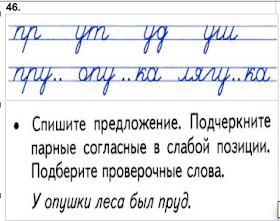 46.
пр ут уд уш
пру.. опу..ка лягу..ка
• Спишите предложение. Подчеркните
парные согласные в слабой позиции.
Подберите проверочные слова.
У опушки леса был пруд.